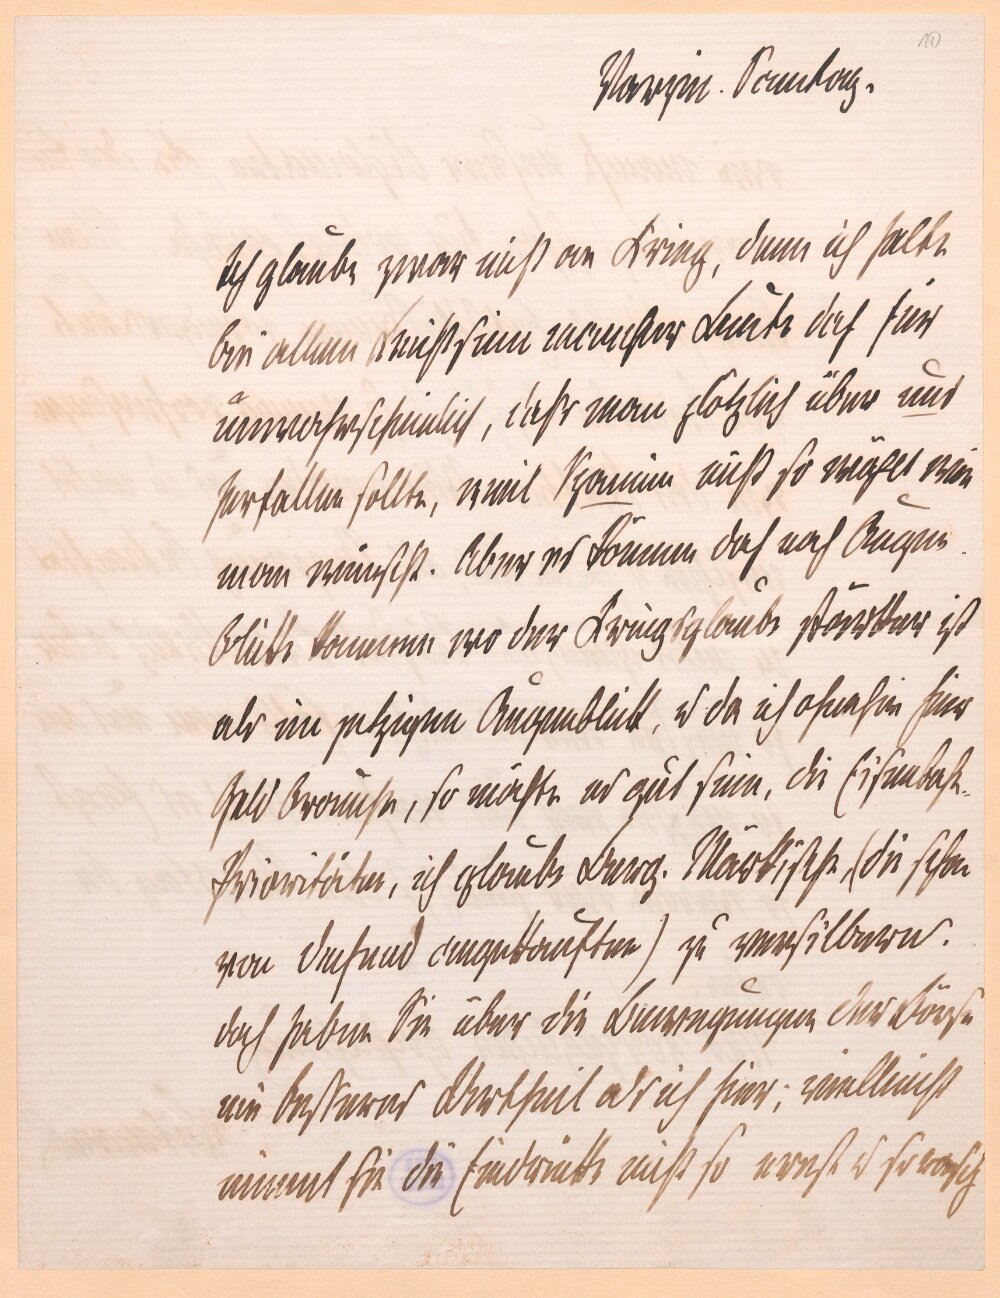 10
Varzin. Sonntag.
Ich glaube zwar nicht an Krieg, denn ich halte
bei allem Leichtsinn mancher Leute doch für
unwahrscheinlich, daß man plötzlich über uns
herfallen sollte, weil Spanien nicht so wählt wie
man wünscht. Aber es können doch noch Augen-
blicke kommen wo der Kriegsglaube stärker ist
als im jetzigen Augenblick, u da ich ohnehin hier
Geld brauche, so möchte es gut sein, die Eisenbahn-
Prioritäten, ich glaube Berg. Märkische, (die schon
von angekauften) zu versilbern.
doch haben Sie über die Bewegungen der Börse
ein besseres Urtheil als ich hier; vielleicht
nimmt sie die Eindrücke nicht so ernst u so rasch